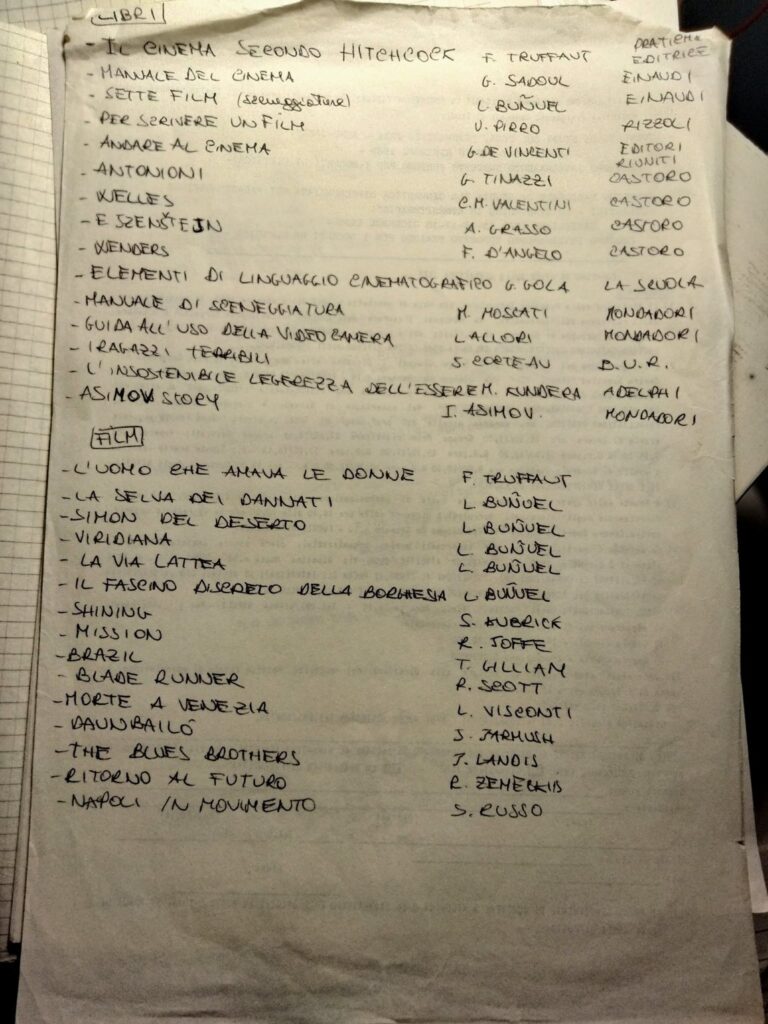 LIBRI
- IL CINEMA SECONDO HITCHCOCK F. TRUFFAUT PRATICHE EDITRICE
- MANUALE DEL CINEMA G. SADOUL EINAUDI
- SETTE FILM (sceneggiature) L. BUÑUEL EINAUDI
- PER SCRIVERE UN FILM U. PIRRO RIZZOLI
- ANDARE AL CINEMA G. DE VINCENTI EDITORI RIUNITI
- ANTONIONI G. TINAZZI CASTORO
- WELLES C.M. VALENTINI CASTORO
- EJZENŠTEJN A. GRASSO CASTORO
- WENDERS F. D'ANGELO CASTORO
- ELEMENTI DI LINGUAGGIO CINEMATOGRAFICO G. GOLA LA SCUOLA
- MANUALE DI SCENEGGIATURA M. MOSCATI MONDADORI
- GUIDA ALL'USO DELLA VIDEOCAMERA L ALLORI MONDADORI
- I RAGAZZI TERRIBILI J. COCTEAU B.U.R.
- L'INSOSTENIBILE LEGEREZZA DELL'ESSERE M. KUNDERA ADELPHI
- ASIMOV STORY I. ASIMOV. MONDADORI
FILM
- L'UOMO CHE AMAVA LE DONNE F. TRUFFAUT
- LA SELVA DEI DANNATI L. BUÑUEL
- SIMON DEL DESERTO L. BUÑUEL
- VIRIDIANA L. BUÑUEL
- LA VIA LATTEA L. BUÑUEL
- IL FASCINO DISCRETO DELLA BORGHESIA L BUÑUEL
- SHINING S. KUBRICK
- MISSION R. JOFFE
- BRAZIL T. GILLIAM
- BLADE RUNNER R. SCOTT
- MORTE A VENEZIA L. VISCONTI
- DAUNBAILÓ J. JARMUSH
- THE BLUES BROTHERS J. LANDIS
- RITORNO AL FUTURO R. ZEMECKIS
- NAPOLI IN MOVIMENTO S. RUSSO